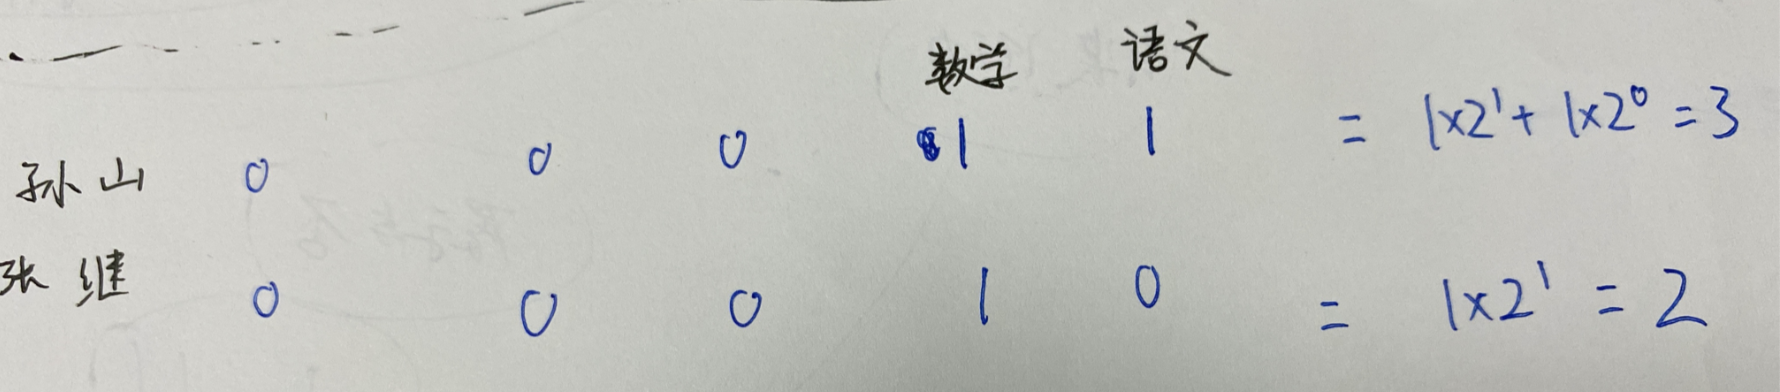 数学 语文
孙山 0 0 0 1 1 = 1×2¹ + 1×2⁰ = 3
张继 0 0 0 1 0 = 1×2¹ = 2